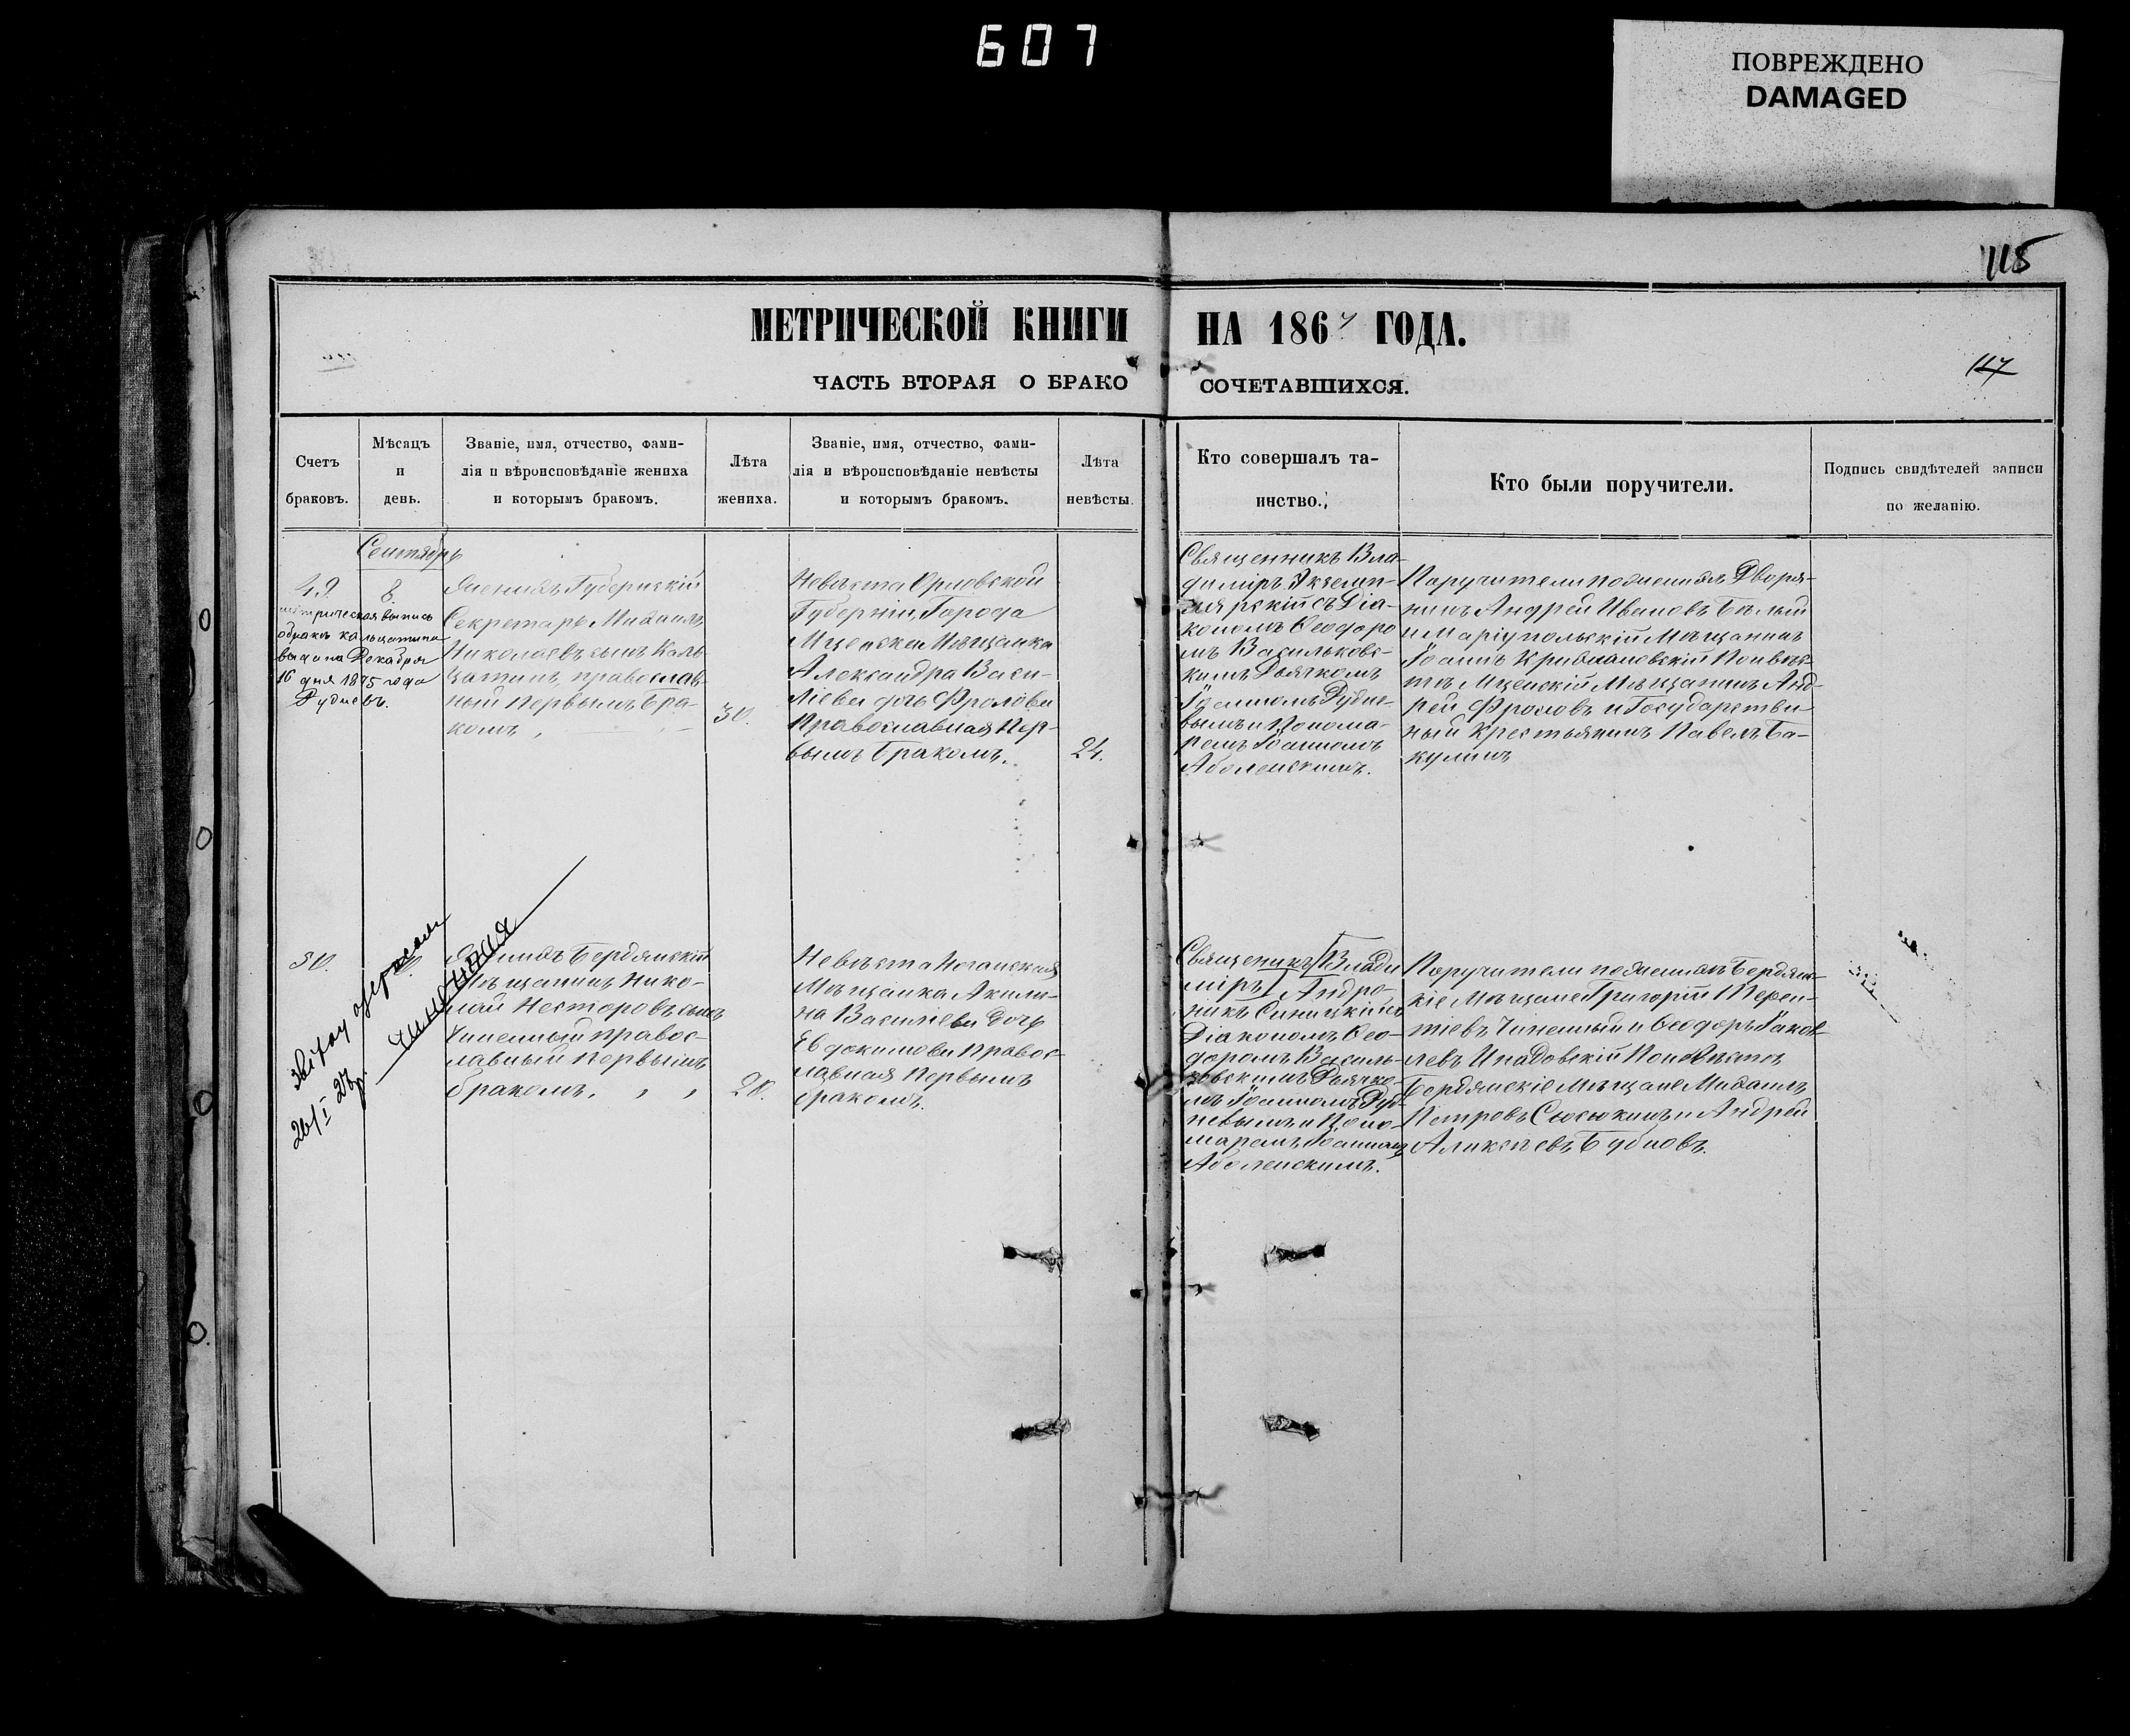 607
ПОВРЕЖДЕНО
DAMAGED
115
МЕТРИЧЕСКОЙ КНИГИ НА 1867 ГОДА.
117
ЧАСТЬ ВТОРАЯ О БРАКО СОЧЕТАВШИХСЯ.
Счетъ
браковъ.
Мѣсяцъ
и
день.
Званіе, имя, отчество, фами-
лія и вѣроисповѣданіе жениха
и которымъ бракомъ.
Лѣта
жениха.
Званіе, имя, отчество, фами-
лія и вѣроисповѣданіе невѣсты
и которымъ бракомъ.
Лѣта
невѣсты.
Кто совершалъ та-
инство.
Кто были поручители.
Подпись свидѣтелей записи
по желанію.
Сентябрь
49.
метрическая выпись
о бракѣ Кальцатина
выдана Декабря
16 дня 1875 года
Рудневъ.
8.
Женихъ Губернскій
Секретарь Михаилъ
Николаевъ сынъ Каль-
цатинъ, православ-
ный первымъ бра-
комъ,
30.
Невѣста Орловской
Губерніи, Города
Мценска Мѣщанка
Александра Васи-
ліева дочь Фролова
Православная Пер-
вымъ бракомъ.
24.
Священникъ Вла-
диміръ
съ Діа-
кономъ Ѳеодоро
мъ Васильковс-
кимъ Дьячкомъ
Іоанномъ Рудне-
вымъ и Понома-
ремъ Іоанномъ
Аболенскимъ.
Поручители по женихѣ Дворя-
нинъ Андрей Ивановъ Бѣлый
и Маріупольскій Мѣщанинъ
Іоаннъ Кривиановскій По невѣс-
тѣ Мценскій Мѣщанинъ Анд-
рей Фроловъ и Государствен
ный Крестьянинъ Павелъ Ба-
кулинъ
50.
26/I 27 р.
Женихъ Бердянскій
Мѣщанинъ Нико-
лай Несторовъ сынъ
Чиненный правос-
лавный первымъ
бракомъ. " "
20.
Невѣста Ногайская
Мѣщанка Акили-
на Василіева дочь
Евдокимова Правос-
лавная первымъ
бракомъ.
Священникъ [Влади
міръ] Андро-
никъ Синицкій съ
Діакономъ Ѳео-
доромъ Василь-
ковскимъ Дьячко-
мъ Іоанномъ Руд-
невымъ и Поно-
маремъ Іоанномъ
Аболенскимъ.
Поручители по женихѣ Бердянс-
кіе Мѣщане Григорій Терен-
тіевъ Чиненный и Ѳеодоръ Іаков-
левъ По невѣстѣ
Бердянскіе Мѣщане Михаилъ
Петровъ Сюсюкинъ и Андрей
Аликсѣевъ Бубновъ.